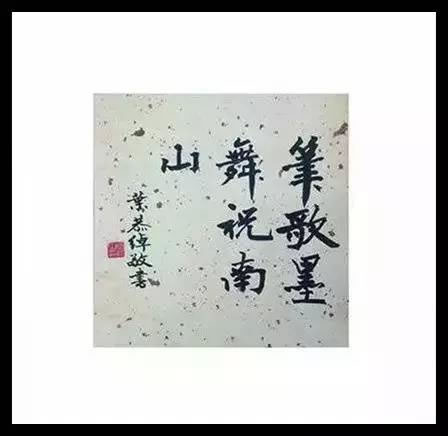 笔歌墨
舞祝南
山
葉恭绰敬書